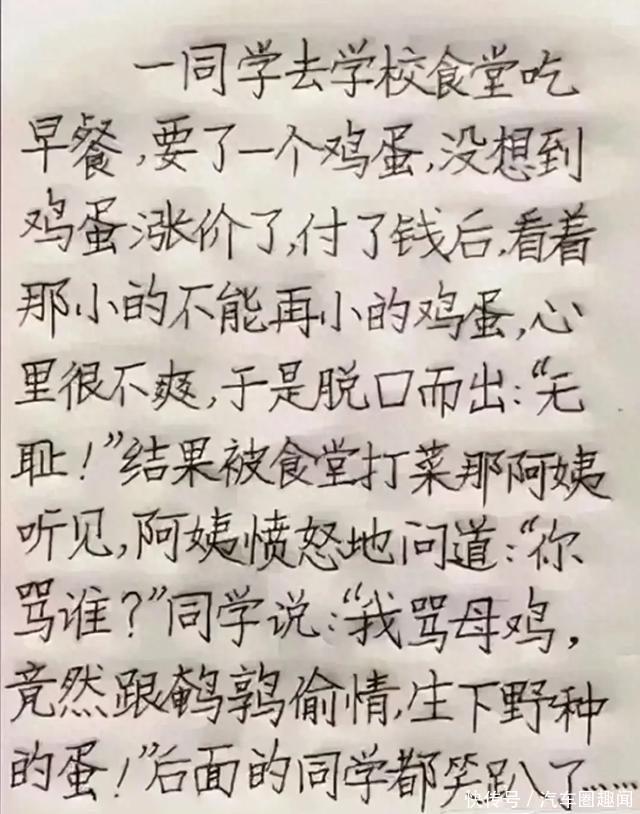 一同学去学校食堂吃
早餐,要了一个鸡蛋,没想到
鸡蛋涨价了,付了钱后,看着
那小的不能再小的鸡蛋,心
里很不爽,于是脱口而出:“无
耻!”结果被食堂打菜那阿姨
听见,阿姨愤怒地问道:“你
骂谁?”同学说:“我骂母鸡,
竟然跟鹌鹑偷情,生下野种
的蛋!”后面的同学都笑趴了……
快传号/汽车圈趣闻